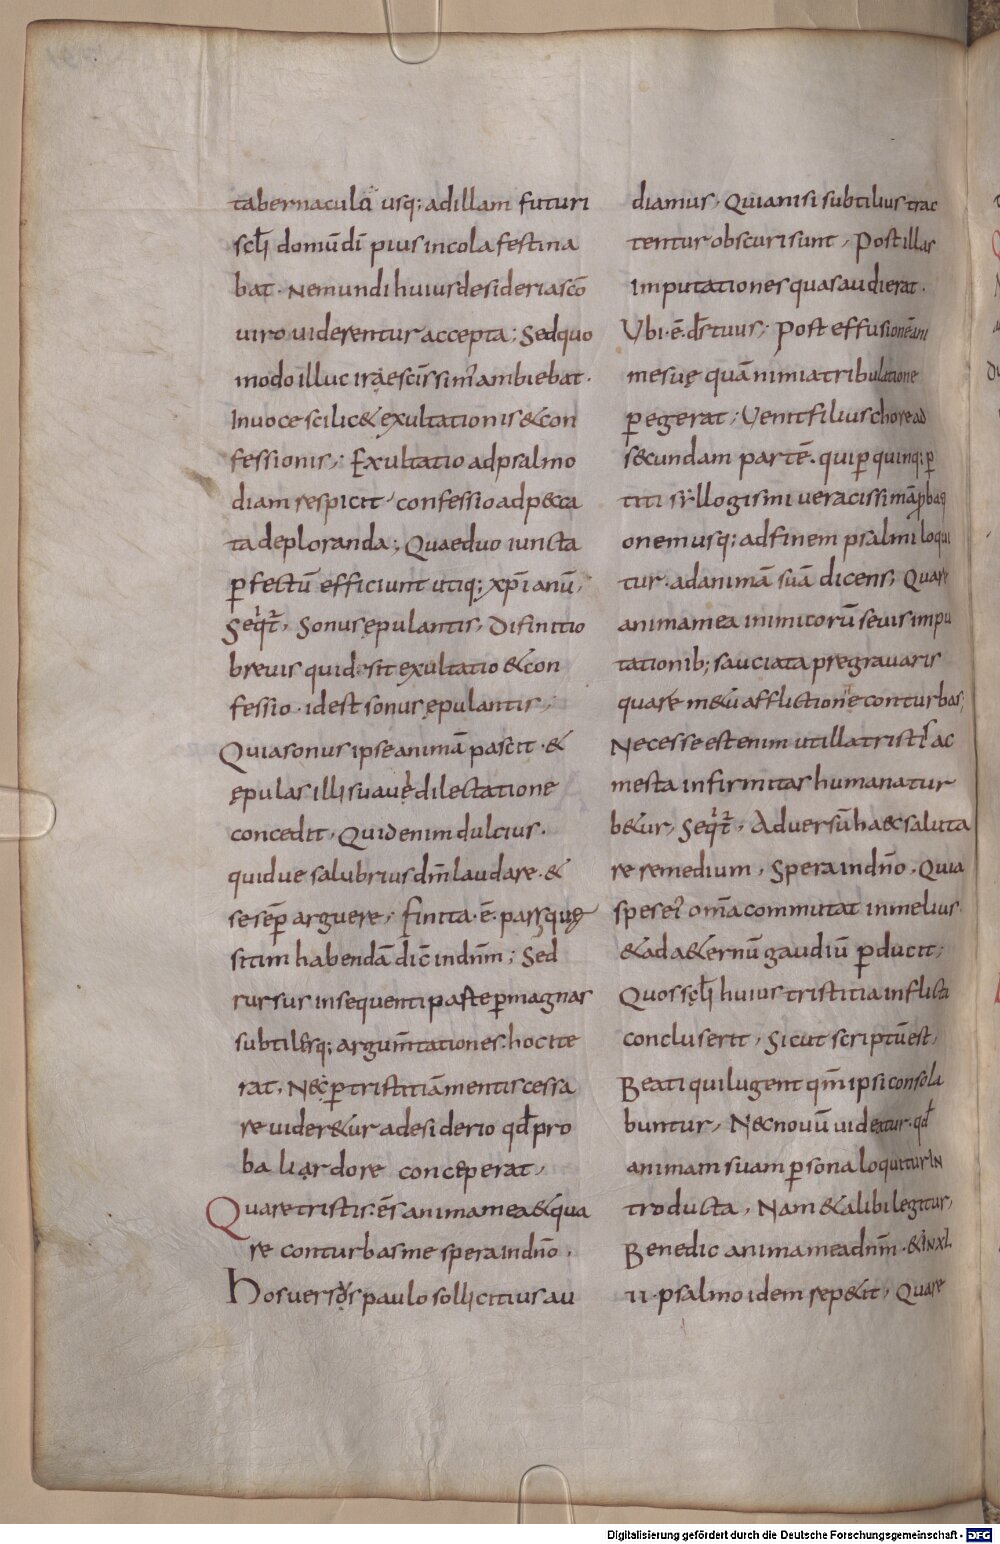 tabernaculū usq; ad illam futuri
scłi domū dī pius incola festina
bat. Ne mundi huius desideria scō
uiro uiderentur accepta; Sed quo
modo illuc
Inuoce scilic& exultationis & con
fessionis; Exultatio ad psalmo
diam respicit confessio ad pecca
ta deploranda; Quae duo iuncta
ꝑfectū efficiunt utiq; xp̄ianū,
Seqt̄, Sonus ępulantis, Difinitio
breuis quid sit exultatio & con
fessio. id est sonus ępulantis;
Quia sonus ipse animā pascit. &
ępulas illi suauę dilectatione
concedit, Quid enim dulcius.
quidue salubrius dn̄m laudare. &
se sēp arguere, finita. ē. pars quę
sitim habendā dic̄ in dn̄m; Sed
rursus in sequenti parte ꝑ magnas
subtilesq; argum̄tationes hoc ite
rat, Nec ꝑ tristitiā mentis cessa
re uider&ur a desiderio qđ pro
bali ardore conceperat,
Quare tristis ēs anima mea & qua
re conturbas me spera in dn̄o,
Hos uersus paulo sollicitius au
diamus, Quia nisi subtilius trac
tentur obscuri sunt, Post illas
Imputationes quas audierat.
Ubi. ē. dś tuus; Post effusionē ani
me suę quā nimia tribulatione
ꝑegerat, Uenit filius chore ad
secundam partē. qui ꝑ quinq; ꝑ
titi syllogismi ueracissimā ꝓbaɋ
onem usq; ad finem psalmi loqui
tur. ad animā suā dicens; Quare
anima mea inimicorū seuis impu
tationib; sauciata pregrauaris
quare me & ū afflictione conturbas;
Necesse est enim ut illa tristis ac
mesta infirmitas humana tur
b&ur, Seqt̄, Aduersū haec saluta
re remedium, Spera in dn̄o. Quia
spes ei omā commutat in melius
& ad a&ernū gaudiū ꝑducit;
Quos sęłi huius tristitia inflicta
concluserit, Sicut scriptū est,
Beati qui lugent qm̄ ipsi consola
buntur, Nec nouū uideatur. qđ
animam suam ꝑsona loquitur in
troducta, Nam & alibi legitur,
Benedic anima mea dn̄m. & in xl
ii. psalmo idem rep&it, Quare
Digitalisierung gefördert durch die Deutsche Forschungsgemeinschaft - DFG